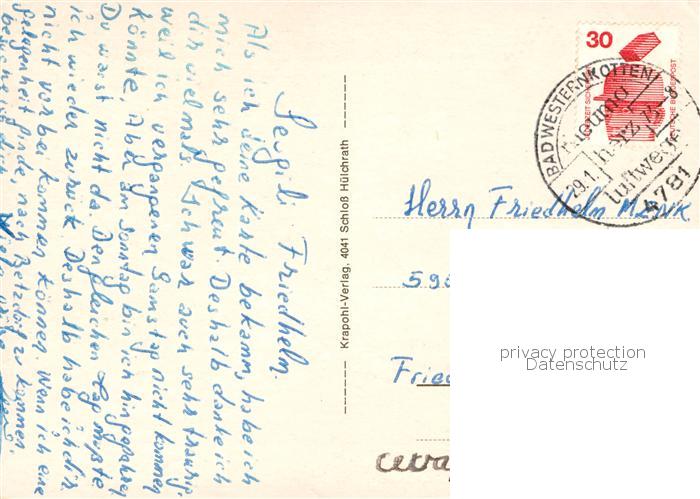 Sevgili Friedhelm.
Als ich deine Karte bekamm, habe ich
mich sehr gefreut. Deshalb danke ich
dir vielmals. Ich war auch sehr traurig,
weil ich vergangenen Samstag nicht kommen
könnte, Aber am Sonntag bin ich hingefahren,
Du warst nicht da. Den gleichen Tag mußte
ich wieder zurück. Deshalb habe ich dir
nicht vorbei kommen können. Wenn ich eine
gelegenheit finde nach Betzdorf zu kommen
besuche ich dich. Viele
Krapohl-Verlag, 4041 Schloß Hülchrath
30
DEUTSCHE BUNDESPOST
BAD WESTERNKOTTEN
Rheuma
herz
luftwege
29.1.
4781
Herrn Friedhelm
59
Fried
privacy protection
Datenschutz